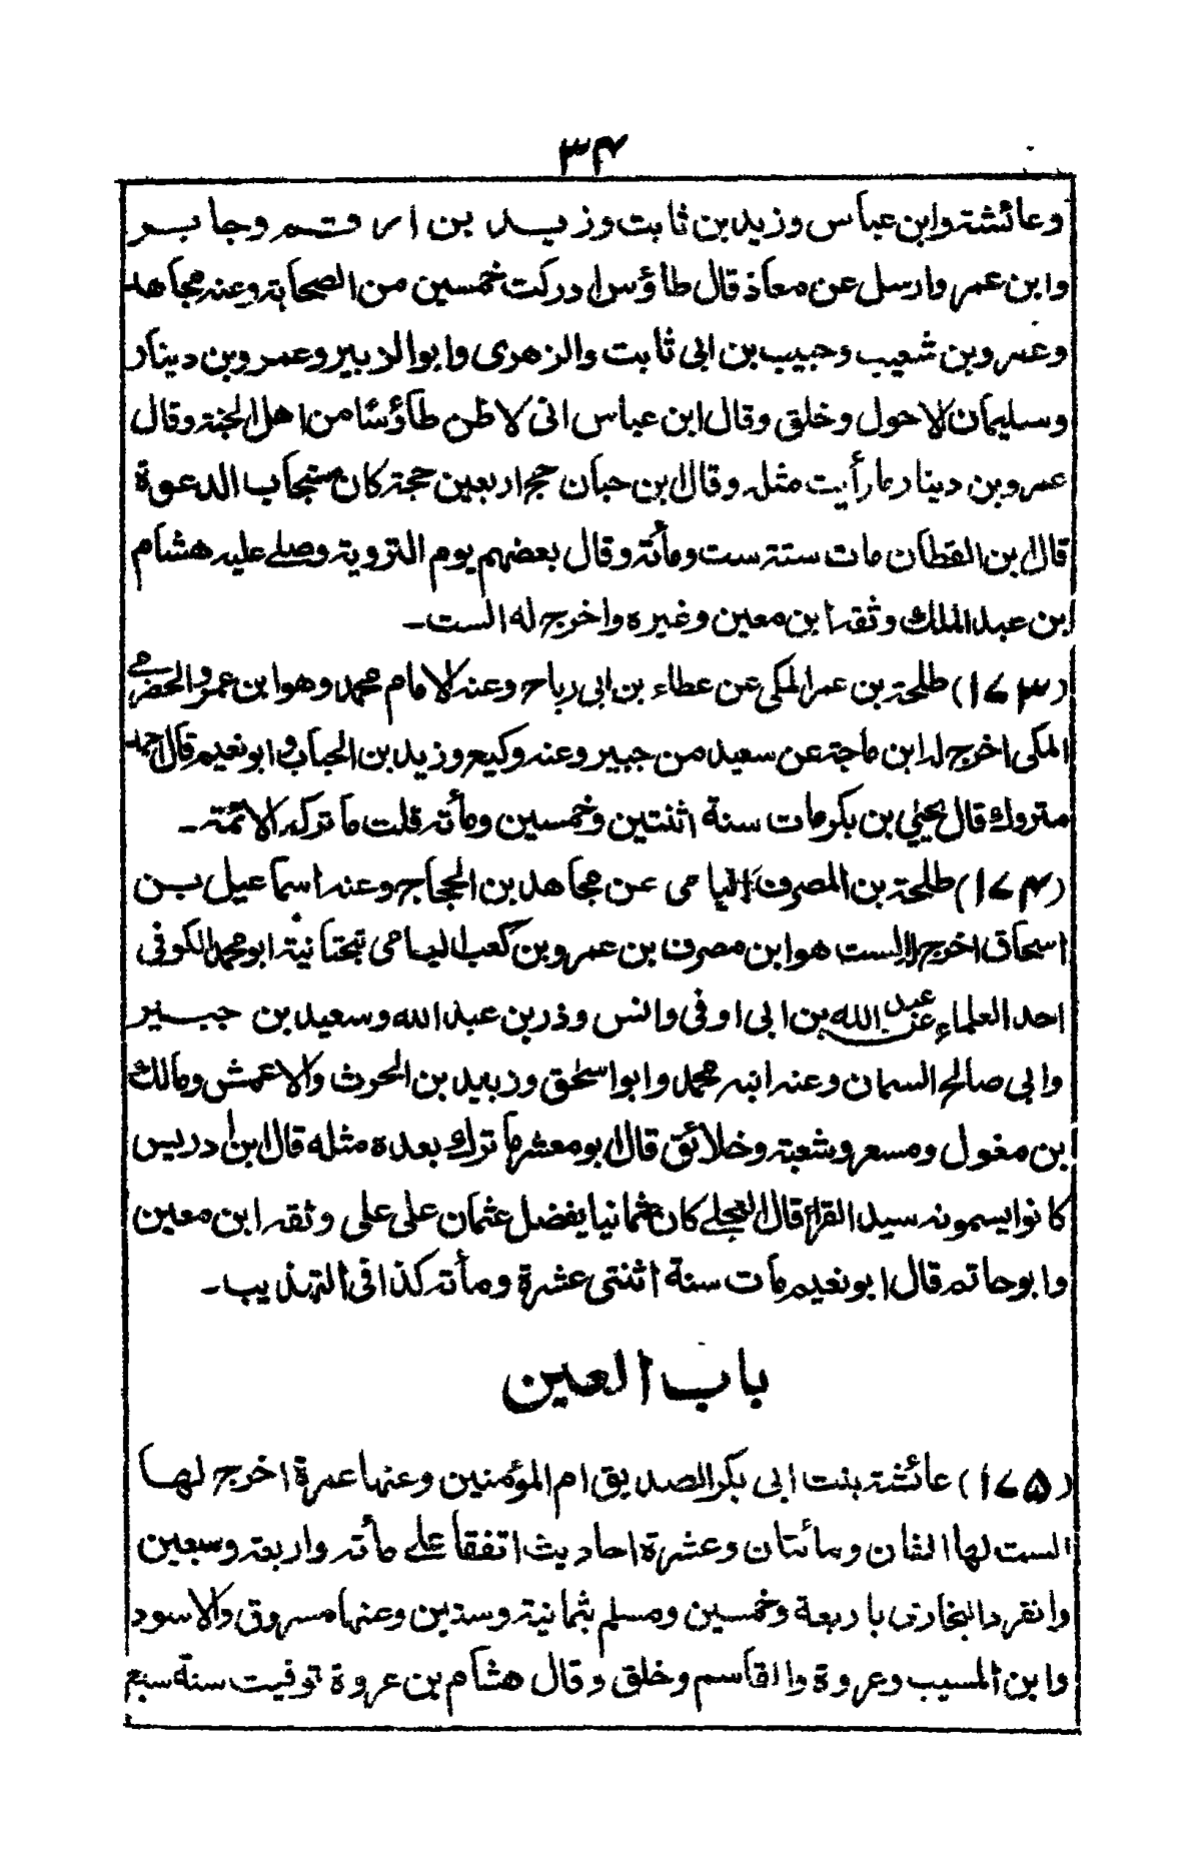 ۳۴
وعائشة وابن عباس وزيد بن ثابت وزيد بن ارقم وجابر
وابن عمر وارسل عن معاذ قال طاؤس ادركت خمسين من الصحابة وعنه مجاهد
وعمر وبن شعيب وحبيب بن ابى ثابت والزهرى وابوالزبير وعمر وبن دينار
وسليمان الاحول وخلق وقال ابن عباس انى لاظن طاؤسًا من اهل الجنة وقال
عمر وبن دينار ما رأيت مثله وقال ابن حبان حج اربعين حجة كان مستجاب الدعوة
قال ابن القطان مات سنة ست ومأته وقال بعضهم يوم التروية وصلے عليه هشام
ابن عبد الملك وثقه ابن معين وغيره واخرج له الست۔
(۱۷۳) طلحة بن عمر المكى عن عطاء بن ابى رباح وعنه الامام محمد وهو ابن عمرو الحضرمے
المكى اخرج له ابن ماجة عن سعيد من جبير وعنه وكيع وزيد بن الحباب وابو نعيم قال احمد
متروك قال يحيٰي بن بكر مات سنة اثنتين وخمسين ومأته قلت ما تركه الائمة۔
(۱۷۴) طلحة بن المصرف اليامى عن مجاهد بن الحجاج وعنه اسماعيل بن
اسحاق اخرج له الست هو ابن مصرف بن عمر وبن كعب اليامى تبحتانية ابو محمد الكوفى
احد العلماء عن عبد الله بن ابى اوفى وانس وذر بن عبد الله وسعيد بن جبير
وابى صالح السمان وعنه ابنه محمد وابو اسٰحٰق وزبيد بن الحرث والاعمش ومالك
بن مغول ومسعر وشعبة وخلائق قال ابو معشر ما ترك بعده مثله قال ابن ادريس
كانوا يسمونه سيد القراء قال العجلے كان عثمانيا يفضل عثمان على على وثقه ابن معين
وابو حاتم قال ابو نعيم مات سنة اثنتى عشرة ومأته كذا فى التهذيب۔
باب العين
(۱۷۵) عائشة بنت ابى بكر الصديق ام المؤمنين وعنها عمرة اخرج لها
الست لها الفان ومائتان وعشرة احاديث اتفقا علے مأته واربعة وسبعين
وانفرد البخارى باربعة وخمسين ومسلم بثمانية وستين وعنها مسروق والاسود
وابن المسيب وعروة والقاسم وخلق وقال هشام بن عروة توفيت سنة سبع